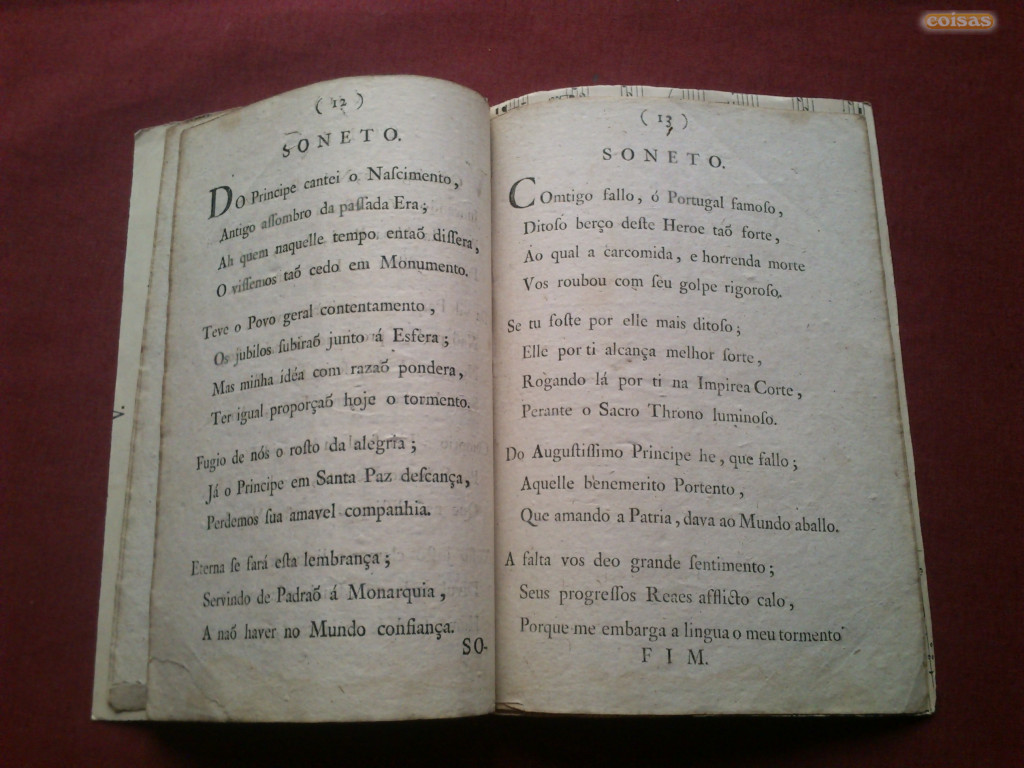 coisas
( 12 )
SONETO.
DO Principe cantei o Naſcimento,
Antigo aſſombro da paſſada Era;
Ah quem naquelle tempo entaõ diſſera,
O viſſemos taõ cedo em Monumento.
Teve o Povo geral contentamento,
Os jubilos ſubiraõ junto á Esfera;
Mas minha idéa com razaõ pondera,
Ter igual proporçaõ hoje o tormento.
Fugio de nós o roſto da alegria;
Já o Principe em Santa Paz deſcança,
Perdemos ſua amavel companhia.
Eterna ſe fará eſta lembrança;
Servindo de Padraõ á Monarquia,
A naõ haver no Mundo confiança.
SO-
( 13 )
SONETO.
COmtigo fallo, ó Portugal famoſo,
Ditoſo berço deſte Heroe taõ forte,
Ao qual a carcomida, e horrenda morte
Vos roubou com ſeu golpe rigoroſo.
Se tu foſte por elle mais ditoſo;
Elle por ti alcança melhor ſorte,
Rogando lá por ti na Impirea Corte,
Perante o Sacro Throno luminoſo.
Do Auguſtiſſimo Principe he, que fallo;
Aquelle benemerito Portento,
Que amando a Patria, dava ao Mundo aballo.
A falta vos deo grande ſentimento;
Seus progreſſos Reaes afflicto calo,
Porque me embarga a lingua o meu tormento
FIM.